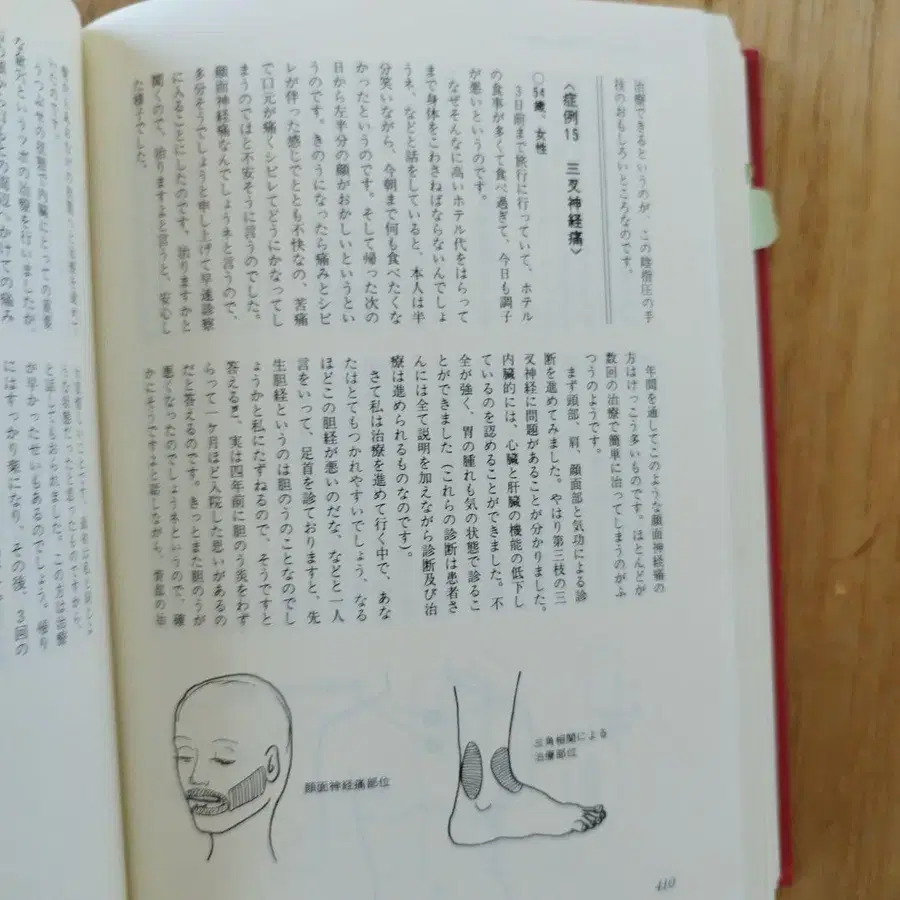 治療できるというのが、この陰指圧の手
技のおもしろいところなのです。
〈症例15 三叉神経痛〉
○54歳、女性
3日前まで旅行に行っていて、ホテル
の食事が多くて食べ過ぎて、今日も調子
が悪いというのです。
なぜそんなに高いホテル代をはらって
まで身体をこわさねばならないんでしょ
うネ、などと話をしていると、本人は半
分笑いながら、今朝まで何も食べたくな
かったというのです。そして帰った次の
日から左半分の顔がおかしいというとい
うのです。きのうになったら痛みとシビ
レが伴った感じでととも不快なの、苦痛
で口元が痛くシビレてどうにかなってし
まうのではと不安そうに言うのでした。
顔面神経痛なんでしょうネと言うので、
多分そうでしょうと申し上げて早速診察
に入ることにしたのです。治りますかと
聞くので、治りますよと言うと、安心し
た様子でした。
年間を通してこのような顔面神経痛の
方はけっこう多いものです。ほとんどが
数回の治療で簡単に治ってしまうのがふ
つうのようです。
まず頭部、肩、顔面部と気功による診
断を進めてみました。やはり第三枝の三
叉神経に問題があることが分かりました。
内臓的には、心臓と肝臓の機能の低下し
ているのを認めることができました。不
全が強く、胃の腫れも気の状態で診るこ
とができました（これらの診断は患者さ
んには全て説明を加えながら診断及び治
療は進められるものなのです）。
さて私は治療を進めて行く中で、あな
たはとてもつかれやすいでしょう、なる
ほどこの胆経が悪いのだな、などと一人
言をいって、足首を診ておりますと、先
生胆経というのは胆のうのことなのでし
ょうかと私にたずねるので、そうですと
答えると、実は四年前に胆のう炎をわず
らって一ヶ月ほど入院した思いがあるの
だと答えるのです。きっとまた胆のうが
悪くなったのでしょうネというので、確
かにそうですよと話しながら、
顔面神経痛部位
三角相関による
治療部位
110
うな状態だったと思ったものですから、
と話してもおられました。この方は治療
が早かったせいもあるのでしょう。帰り
にはすっかり楽になり、その後、3回の